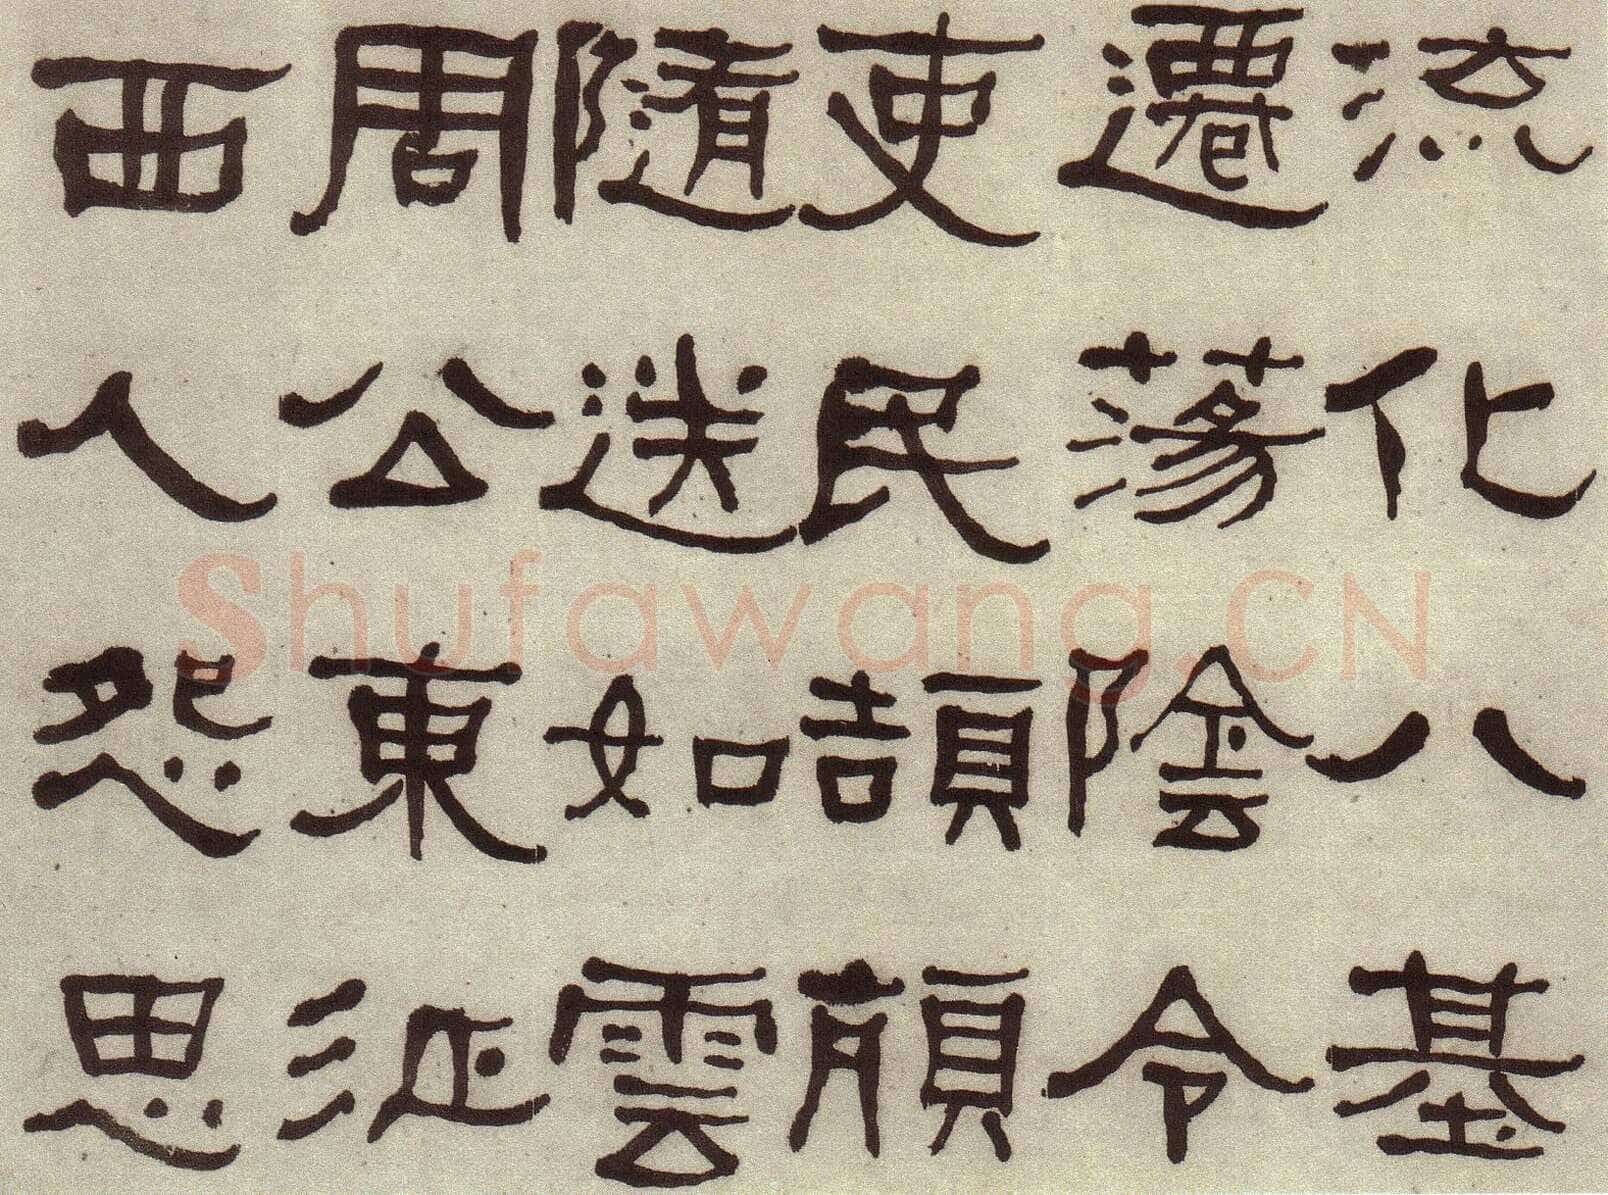 流化八基
遷蕩陰令
吏民頡頏
隨送如雲
周公東征
西人怨思
Shufawang.CN